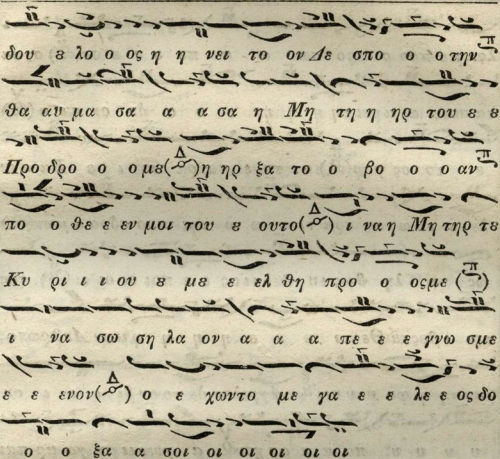 δου ε λο ο ος η η νει το ον Δε σπο ο ο την
θα αυ μα σα α α σα η Μη τη η ηρ του ε ε
Προ δρο ο ο με (Δ) η ηρ ξα το ο βο ο ο αν
πο ο θε ε εν μοι του ε ουτο (Δ) ι να η Μητηρ τε
Κυ ρι ι ι ου ε με ε ελ θη προ ο οςμε (π)
ι να σω ση λα ον α α α πε ε ε γνω σμε
ε ε ενον (Δ) ο ε χωντο με γα ε ε λε ε ος δο
ο ο ξα α σοι οι οι οι οι οι